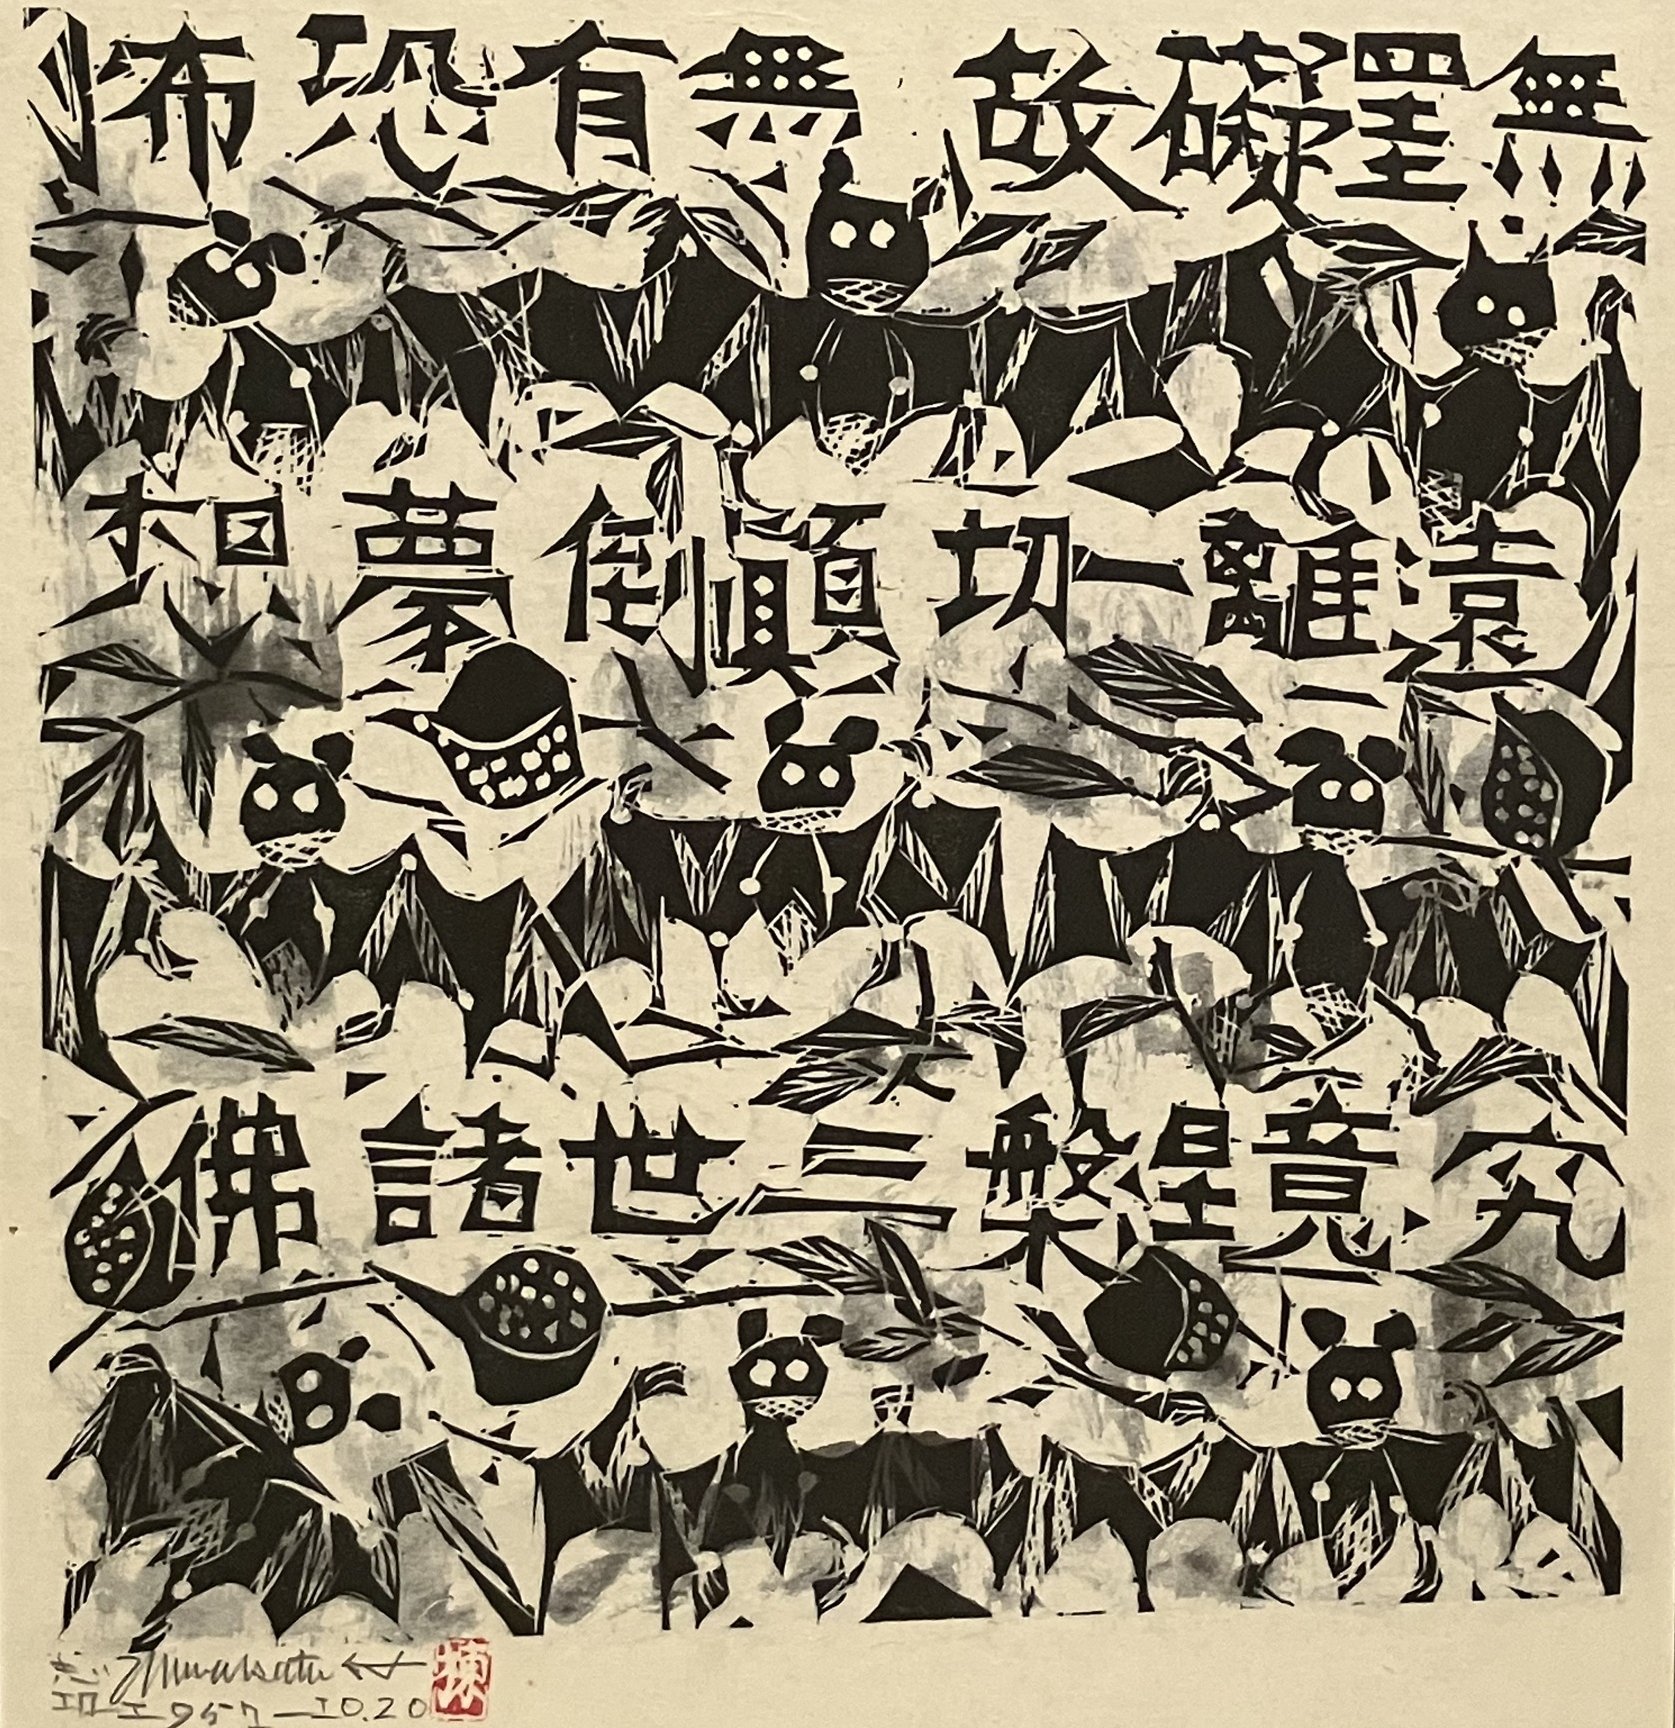 無罣礙故 無有恐怖
遠離一切顛倒夢想
究竟涅槃三世諸佛
志功 Munakata
1957-10.20
棟